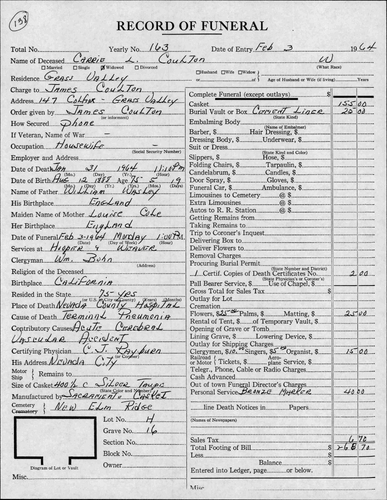 198
RECORD OF FUNERAL
Total No. Yearly No. 163 Date of Entry Feb 3 1964
Name of Deceased Carrie L. Coulton W
(What Race)
Married Single Widowed Divorced Husband Wife Widow of Age of Husband or Wife (if living) Years
Residence Grass Valley
Charge to James Coulton
Address 147 Colfax - Grass Valley
Order given by James Coulton
(or informant)
How Secured Phone
If Veteran, Name of War
Occupation Housewife
(Social Security Number)
Employer and Address
Date of Death Jan 31 1964 11:10 PM
Date of Birth Aug 1888 Age 75 5 19
Name of Father William Wasley
His Birthplace England
Maiden Name of Mother Louise Cole
Her Birthplace England
Date of Funeral Feb 3-1964 Monday 1:00 PM
Services at Hooper & Weaver
Clergyman Wm. Bohn
(Address)
Religion of the Deceased
Birthplace California
Resided in the State 75-yrs
Place of Death Nevada County Hospital
Cause of Death Terminal Pneumonia
Contributory Causes Acute Cerebral
Vascular Accident
Certifying Physician C. J. Rayburn
His Address Nevada City
Motor Ship Remains to
Size of Casket Silver
Manufactured by Sacramento Casket
Cemetery
Crematory New Elm Ridge
Lot No. H
Grave No. 16
Section No.
Block No.
Owner
Diagram of Lot or Vault
Complete Funeral (except outlays) $
Casket 155 00
Burial Vault or Box Cement Liner 20 00
(State Kind)
Embalming Body
(Name of Embalmer)
Barber, $ Hair Dressing, $
Dressing Body, $ Underwear, $
Suit or Dress
(State Kind and Color)
Slippers, $ Hose, $
Folding Chairs, $ Tarpaulin, $
Candelabrum, $ Candles, $
Door Spray, $ Gloves, $
Funeral Car, $ Ambulance, $
Limousines to Cemetery @ $
Extra Limousines @ $
Autos to R. R. Station @ $
Getting Remains from
Taking Remains to
Trip to Coroner's Inquest
Delivering Box to
Deliver Flowers to
Removal Charges
Procuring Burial Permit
(State Number and District)
1 Certif. Copies of Death Certificates No. 2 00
Pall Bearer Service, $ Use of Chapel, $
Gross Total for Sales Tax $
Outlay for Lot
Cremation
Flowers, $25.00 Palms, $ Matting, $ 25 00
Rental of Tent, $ of Temporary Vault, $
Opening of Grave or Tomb
Lining Grave, $ Lowering Device, $
Outlay for Shipping Charges
Clergymen, $10.00 Singers, $5 Organist, $ 15 00
Railroad or Motor Tickets, $ Aeroplane Service, $
Telegr., Phone, Cable or Radio Charges
Cash Advanced
Out of town Funeral Director's Charges
Personal Service Bronze Marker 40 00
line Death Notices in Papers
(Names of Newspapers)
Sales Tax 6 70
Total Footing of Bill $ 70
Less
Balance $
Entered into Ledger, page or below.
Misc.